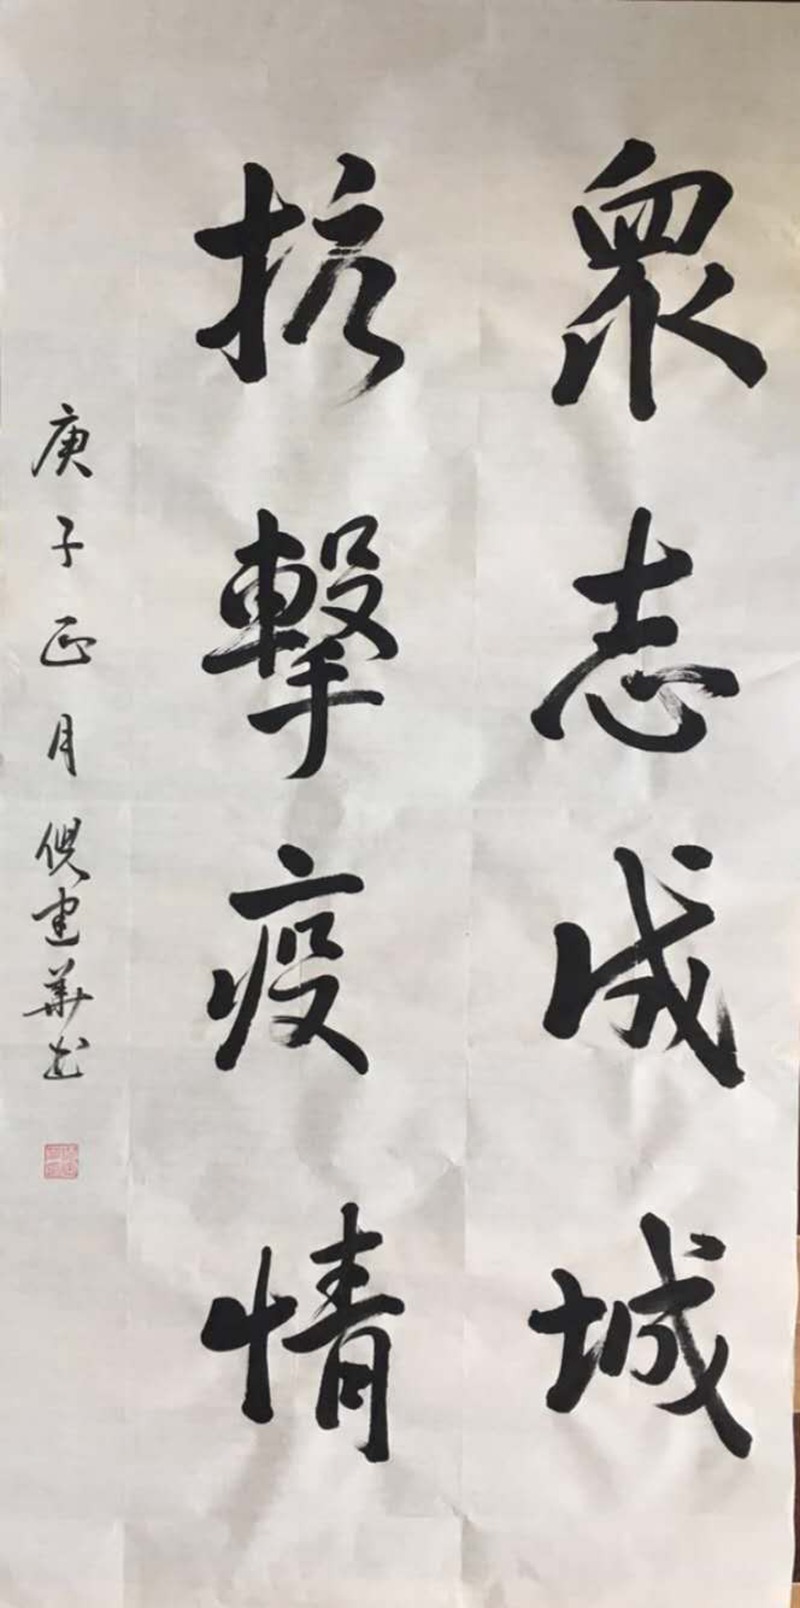 眾志成城
抗擊疫情
庚子正月倪建華书